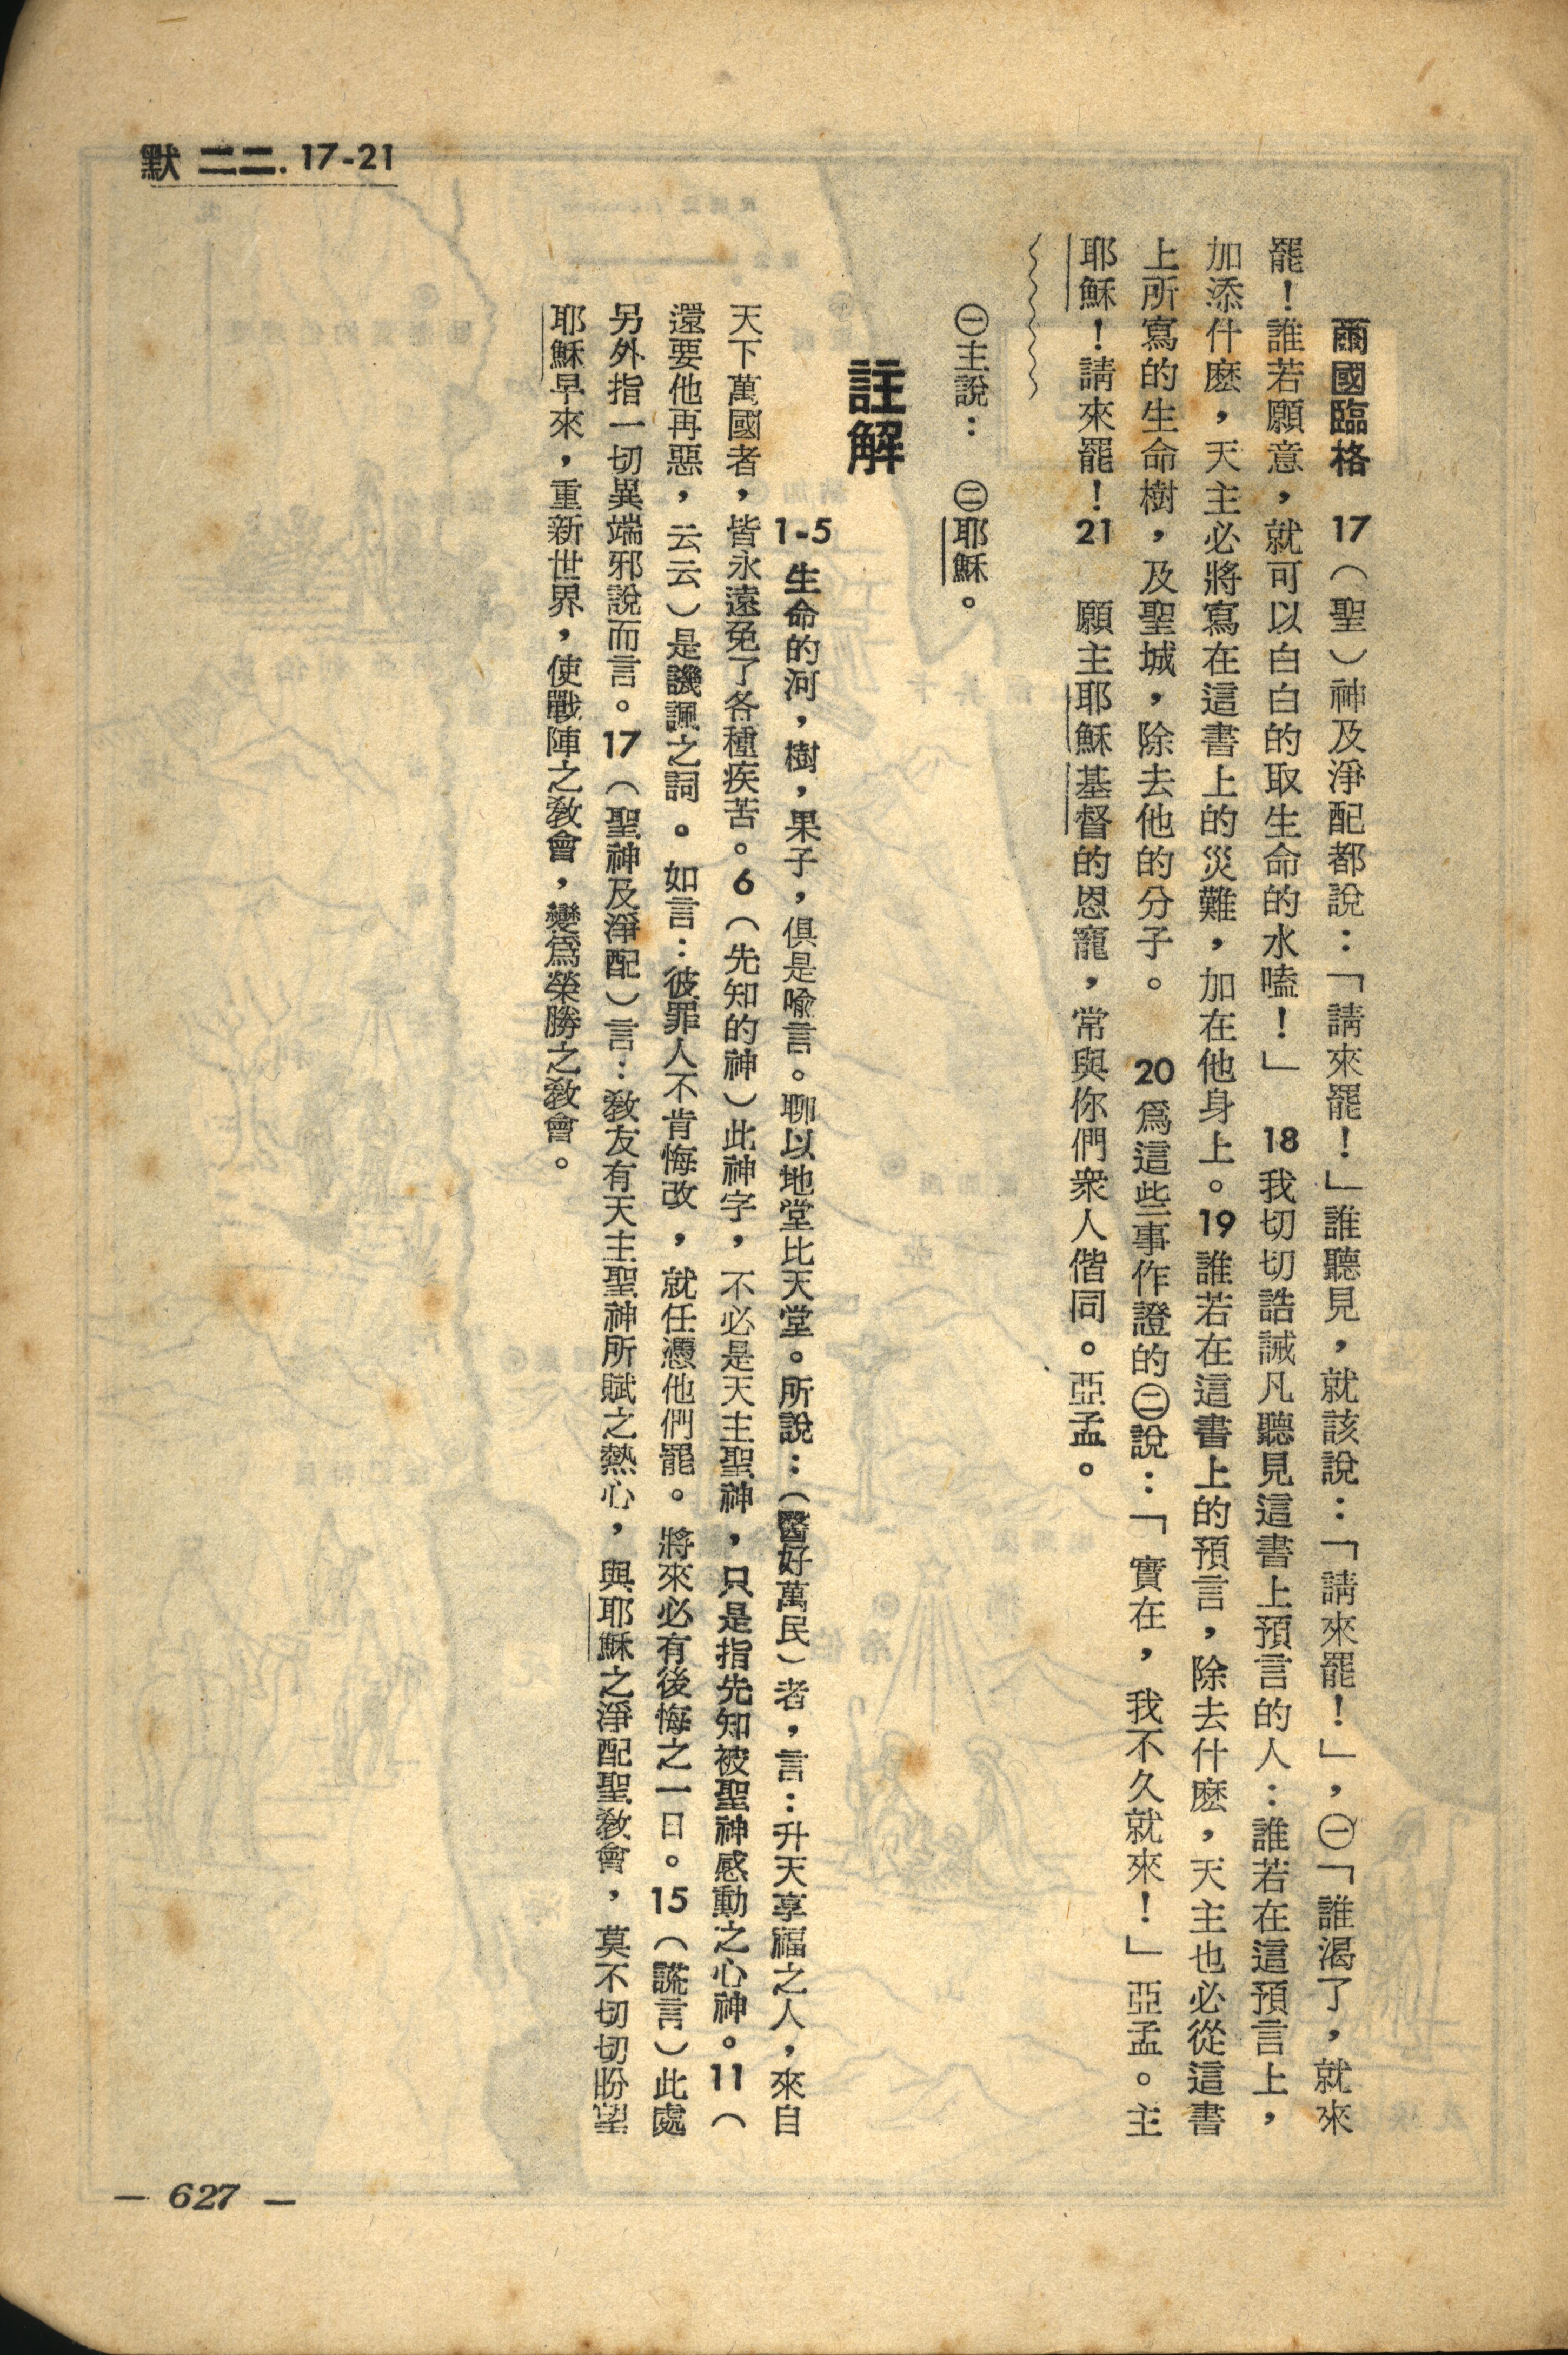 默 二二. 17-21
爾國臨格　17（聖）神及淨配都說：「請來罷！」誰聽見，就該說：「請來罷！」，㊀「誰渴了，就來
罷！誰若願意，就可以白白的取生命的水嗑！」　18 我切切誥誡凡聽見這書上預言的人：誰若在這預言上，
加添什麽，天主必將寫在這書上的災難，加在他身上。19 誰若在這書上的預言，除去什麽，天主也必從這書
上所寫的生命樹，及聖城，除去他的分子。　20 爲這些事作證的㊁說：「實在，我不久就來！」亞孟。主
耶穌！請來罷！21　願主耶穌基督的恩寵，常與你們衆人偕同。亞孟。
㊀主說：　㊁耶穌。
註解
1-5 生命的河，樹，果子，俱是喻言。聊以地堂比天堂。所說：（醫好萬民）者，言：升天享福之人，來自
天下萬國者，皆永遠免了各種疾苦。6（先知的神）此神字，不必是天主聖神，只是指先知被聖神感動之心神。11（
還要他再惡，云云）是譏諷之詞。如言：彼罪人不肯悔改，就任憑他們罷。將來必有後悔之一日。15（謊言）此處
另外指一切異端邪說而言。17（聖神及淨配）言：敎友有天主聖神所賦之熱心，與耶穌之淨配聖敎會，莫不切切盼望
耶穌早來，重新世界，使戰陣之敎會，變爲榮勝之敎會。
— 627 —